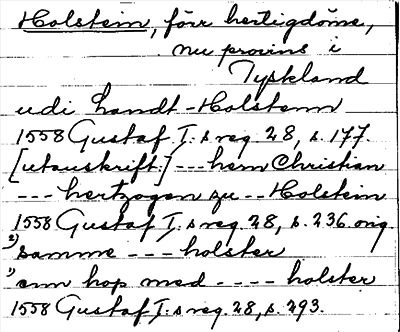 Holstein, förr hertigdöme,
nu provins i
Tyskland
udi Landt-Holstenn
1558 Gustaf I.s reg. 28, s. 177.
[utanskrift:] --- hern Christian
--- hertzogen zu -- Holstein
1558 Gustaf I.s reg. 28, s. 236 orig.
2) samme --- holster
1) enn hop med ---- holster
1558 Gustaf I.s reg. 28, s. 293.